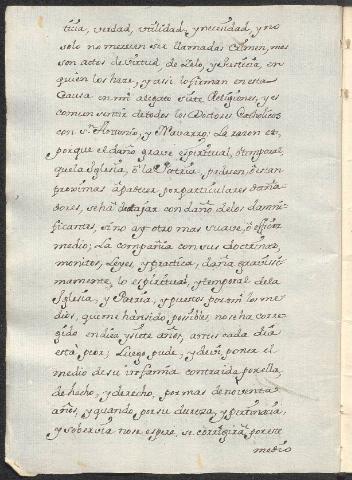 ticia, verdad, utilidad, y necesidad, y no
solo no merecen ser llamadas crimen, mas
son actos de virtud de Zelo, y Justicia, en
quien los haze, y assi lo firman en esta
Causa en mi alegato siete Religiones, y es
comun sentir de todos los Doctores Catholicos
con Sn. Antonio, y Navarro: La razon es,
porque el daño grave espiritual, ô temporal
que la Iglesia, ô la Patria padecen, ô estan
proximas â padecer, por particulares daña
dores, se ha de atajar con daño de los damni
ficantes, si no ay otro mas suave, ô eficàz
medio; La compañia con sus doctrinas,
monitos, Leyes, y practica, daña gravissi
mamente, lo espiritual, y temporal de la
Iglesia, y Patria, y puestos por mi los me
dios, que me hàn sido possibles, no se ha corre
gido en diez y siete años, antes cada dia
està peor; Luego pude, y devi poner el
medio de su infamia contraida por ella,
de hecho, y derecho, por mas de noventa
años, y quando por su dureza, y pertinacia,
y sobervia no se espere, se corregirà por este
medio